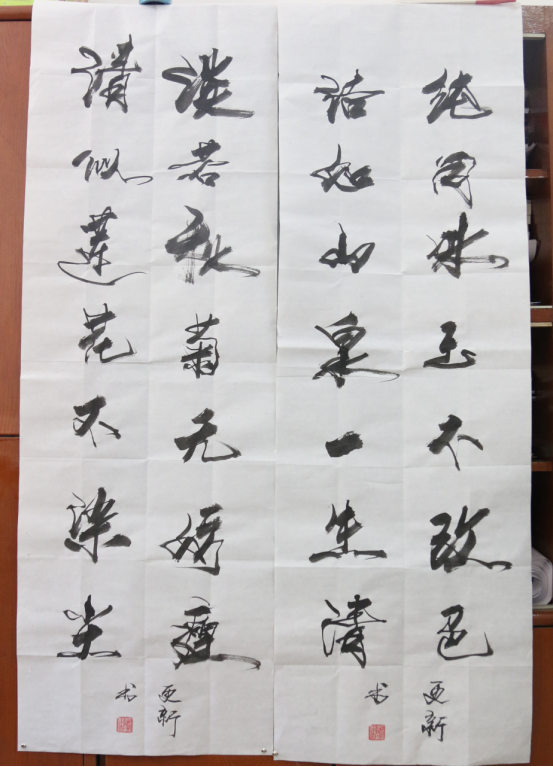 纯同冰玉不改色
更新
洁如山泉一生清
书
淡若秋菊无娇
更新
清似莲花不染尘
书